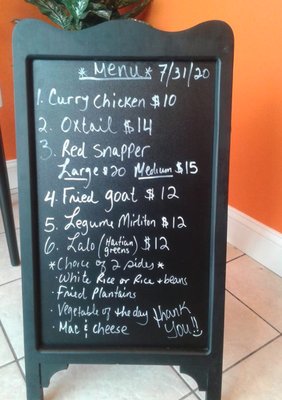 *Menu* 7/31/20
1. Curry Chicken $10
2. Oxtail $14
3. Red Snapper
Large $20 Medium $15
4. Fried goat $12
5. Legume Mirliton $12
6. Lalo (Haitian greens) $12
*Choice of 2 sides*
· White Rice or Rice & beans
· Fried Plantains
· Vegetable of the day
· Mac & cheese
thank
You!!